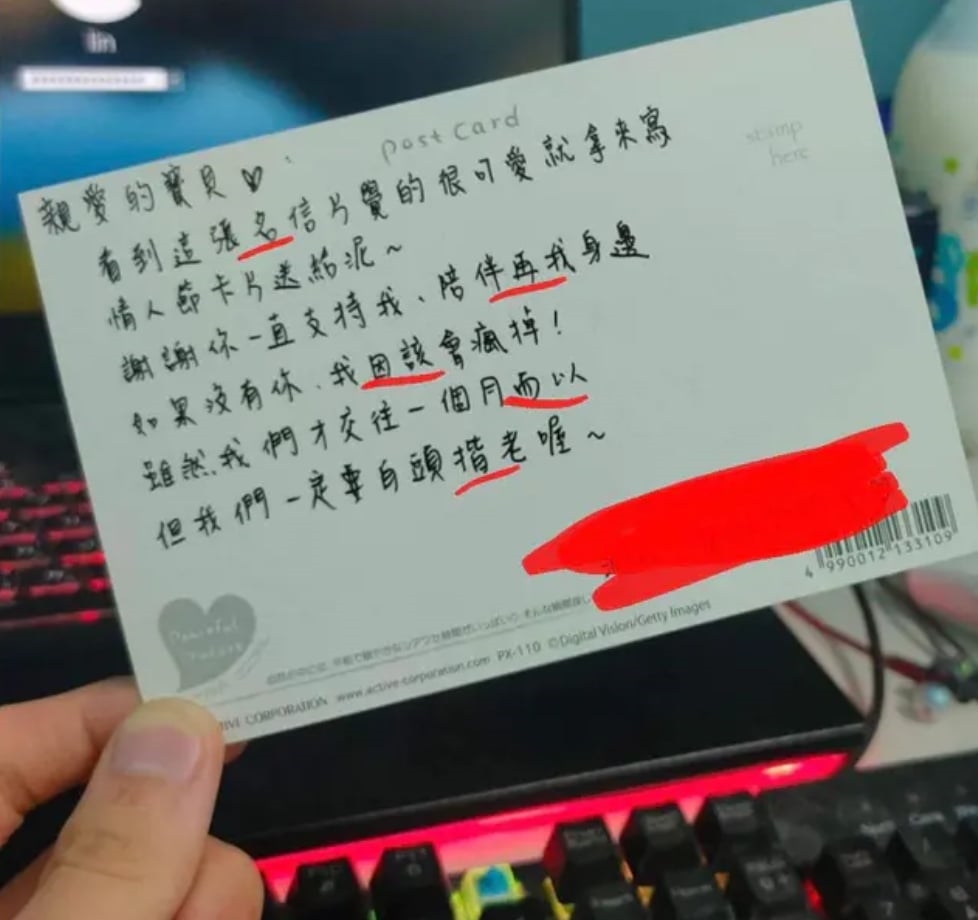 lin
post card
stamp
here
親愛的寶貝♡
看到這張名信片覺的很可愛就拿來寫
情人節卡片送給泥~
謝謝你一直支持我、陪伴再我身邊
如果沒有你、我因該會瘋掉!
雖然我們才交往一個月而以
但我們一定要自頭揩老喔~
4 990012 133109
Peaceful
www.active-corporation.com PX-110 ©Digital Vision/Getty Images